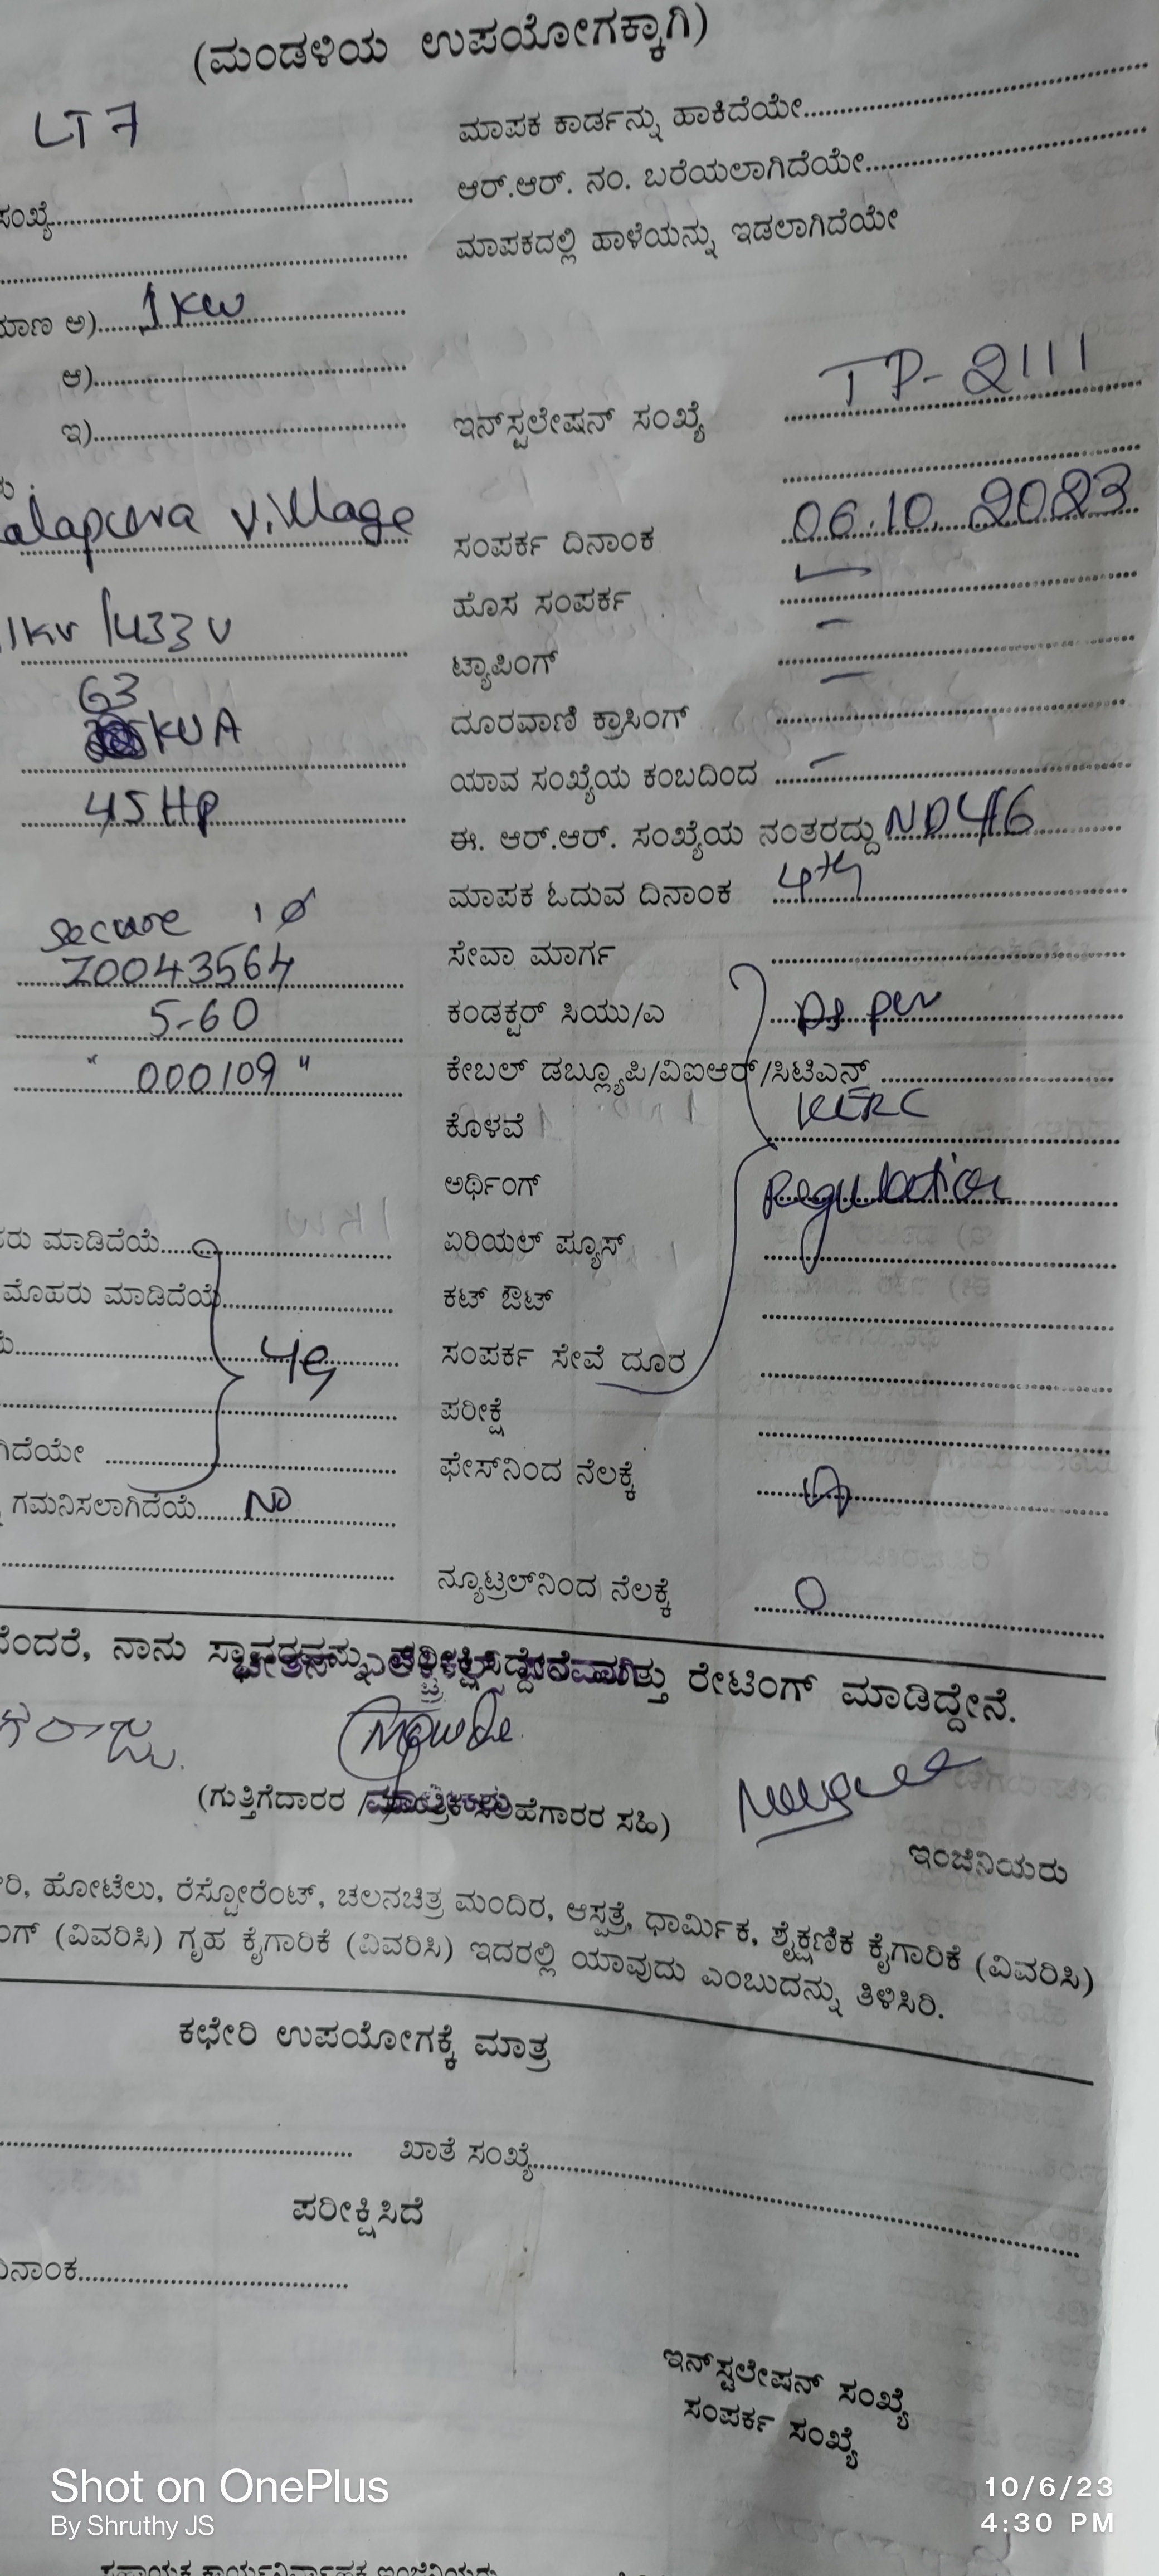 (ಮಂಡಳಿಯ ಉಪಯೋಗಕ್ಕಾಗಿ)
LT 7
ಮಾಪಕ ಕಾರ್ಡನ್ನು ಹಾಕಿದೆಯೇ
ಸಂಖ್ಯೆ
ಆರ್.ಆರ್. ನಂ. ಬರೆಯಲಾಗಿದೆಯೇ
ಮಾಪಕದಲ್ಲಿ ಹಾಳೆಯನ್ನು ಇಡಲಾಗಿದೆಯೇ
ಅ) 1 KW
ಆ)
ಇ)
ಇನ್‌ಸ್ಟಲೇಷನ್ ಸಂಖ್ಯೆ TP-2111
alapura village
ಸಂಪರ್ಕ ದಿನಾಂಕ 06.10.2023
ಹೊಸ ಸಂಪರ್ಕ
1KV/433V
ಟ್ಯಾಪಿಂಗ್ -
63
KVA
ದೂರವಾಣಿ ಕ್ರಾಸಿಂಗ್ -
ಯಾವ ಸಂಖ್ಯೆಯ ಕಂಬದಿಂದ -
45 HP
ಈ. ಆರ್.ಆರ್. ಸಂಖ್ಯೆಯ ನಂತರದ್ದು ND 46
ಮಾಪಕ ಓದುವ ದಿನಾಂಕ 4th
secure 1 Ø
Z0043564
ಸೇವಾ ಮಾರ್ಗ
5-60
ಕಂಡಕ್ಟರ್ ಸಿಯು/ಎ As per
" 000109 "
ಕೇಬಲ್ ಡಬ್ಲ್ಯೂಪಿ/ವಿಐಆರ್/ಸಿಟಿಎನ್
ಕೊಳವೆ KERC
ಅರ್ಥಿಂಗ್ Regulation
ರು ಮಾಡಿದೆಯೆ
ಏರಿಯಲ್ ಪ್ಯೂಸ್
ಮೊಹರು ಮಾಡಿದೆಯೆ
ಕಟ್ ಔಟ್
ಸಂಪರ್ಕ ಸೇವೆ ದೂರ
ಪರೀಕ್ಷೆ
ಗಿದೆಯೇ
ಫೇಸ್‌ನಿಂದ ನೆಲಕ್ಕೆ
ಗಮನಿಸಲಾಗಿದೆಯೆ NO
ನ್ಯೂಟ್ರಲ್‌ನಿಂದ ನೆಲಕ್ಕೆ 0
ನಾನು ಸ್ಥಾವರವನ್ನು ಪರೀಕ್ಷಿಸಿದ್ದೇನೆ ಮತ್ತು ರೇಟಿಂಗ್ ಮಾಡಿದ್ದೇನೆ.
(ಗುತ್ತಿಗೆದಾರರ / ಸಹಿ)
ಇಂಜಿನಿಯರು
ರಿ, ಹೋಟೆಲು, ರೆಸ್ಟೋರೆಂಟ್, ಚಲನಚಿತ್ರ ಮಂದಿರ, ಆಸ್ಪತ್ರೆ, ಧಾರ್ಮಿಕ, ಶೈಕ್ಷಣಿಕ ಕೈಗಾರಿಕೆ (ವಿವರಿಸಿ)
ಂಗ್ (ವಿವರಿಸಿ) ಗೃಹ ಕೈಗಾರಿಕೆ (ವಿವರಿಸಿ) ಇದರಲ್ಲಿ ಯಾವುದು ಎಂಬುದನ್ನು ತಿಳಿಸಿರಿ.
ಕಛೇರಿ ಉಪಯೋಗಕ್ಕೆ ಮಾತ್ರ
ಖಾತೆ ಸಂಖ್ಯೆ
ಪರೀಕ್ಷಿಸಿದೆ
ದಿನಾಂಕ
ಇನ್‌ಸ್ಟಲೇಷನ್ ಸಂಖ್ಯೆ
ಸಂಪರ್ಕ ಸಂಖ್ಯೆ
Shot on OnePlus
By Shruthy JS
10/6/23
4:30 PM